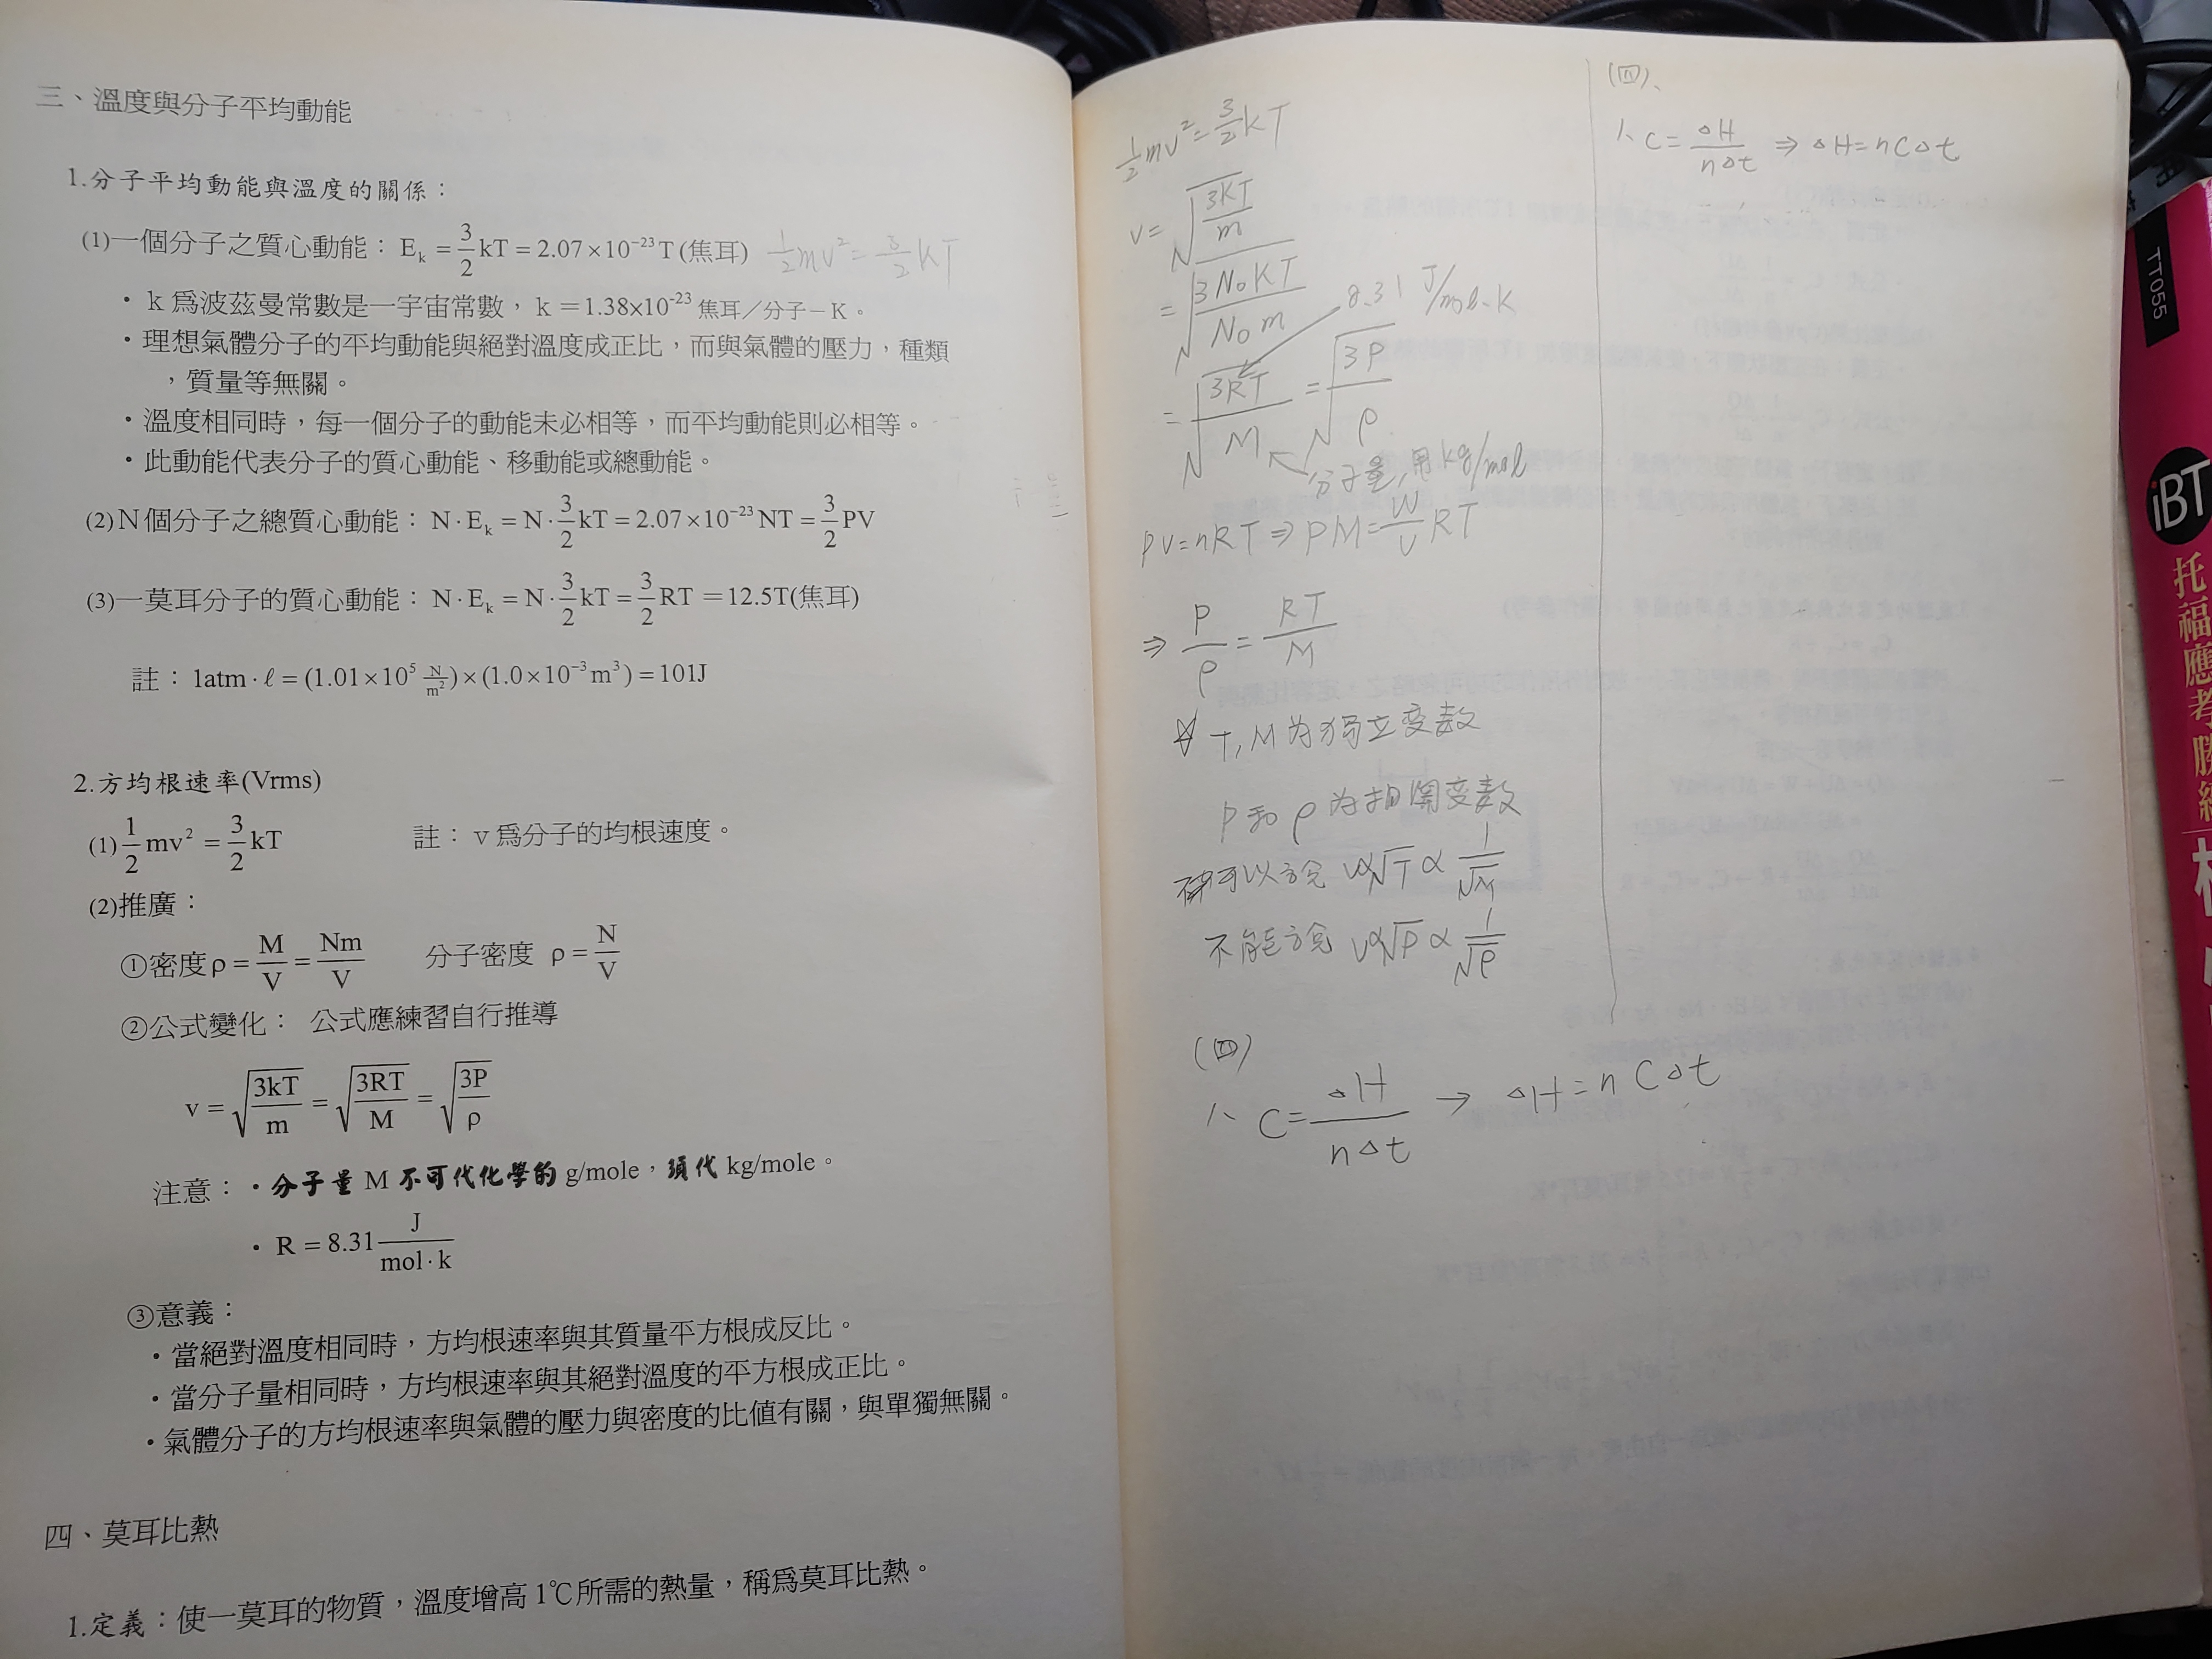 三、溫度與分子平均動能
1.分子平均動能與溫度的關係：
(1)一個分子之質心動能：E_k = 3/2 kT = 2.07×10^-23 T (焦耳) 1/2 mv^2 = 3/2 kT
・k 爲波茲曼常數是一宇宙常數，k＝1.38×10^-23 焦耳／分子－K。
・理想氣體分子的平均動能與絕對溫度成正比，而與氣體的壓力，種類
，質量等無關。
・溫度相同時，每一個分子的動能未必相等，而平均動能則必相等。
・此動能代表分子的質心動能、移動能或總動能。
(2)N個分子之總質心動能：N·E_k = N·3/2 kT = 2.07×10^-23 NT = 3/2 PV
(3)一莫耳分子的質心動能：N·E_k = N·3/2 kT = 3/2 RT ＝12.5T(焦耳)
註：1atm·ℓ = (1.01×10^5 N/m^2)×(1.0×10^-3 m^3) = 101J
2.方均根速率(Vrms)
(1) 1/2 mv^2 = 3/2 kT 註：v 爲分子的均根速度。
(2)推廣：
①密度ρ = M/V = Nm/V 分子密度 ρ = N/V
②公式變化： 公式應練習自行推導
v = √(3kT/m) = √(3RT/M) = √(3P/ρ)
注意：・分子量 M 不可代化學的 g/mole，須代 kg/mole。
・R = 8.31 J/mol·k
③意義：
・當絕對溫度相同時，方均根速率與其質量平方根成反比。
・當分子量相同時，方均根速率與其絕對溫度的平方根成正比。
・氣體分子的方均根速率與氣體的壓力與密度的比値有關，與單獨無關。
四、莫耳比熱
1.定義：使一莫耳的物質，溫度增高 1℃所需的熱量，稱爲莫耳比熱。
1/2 mv^2 = 3/2 kT
v = √(3KT/m)
= √(3N₀KT/N₀m) 8.31 J/mol·K
= √(3RT/M) = √(3P/ρ)
分子量,用kg/mol
PV=nRT ⇒ PM = W/V RT
⇒ P/ρ = RT/M
T, M 为獨立变数
P和ρ为相関变数
可以說 v∝√T ∝ 1/√M
不能說 v∝√P ∝ 1/√ρ
(四)
1、 C = △H/n△t → △H = nC△t
(四)、
1、 C = △H/n△t ⇒ △H = nC△t
TT055
iBT
托福應考勝經